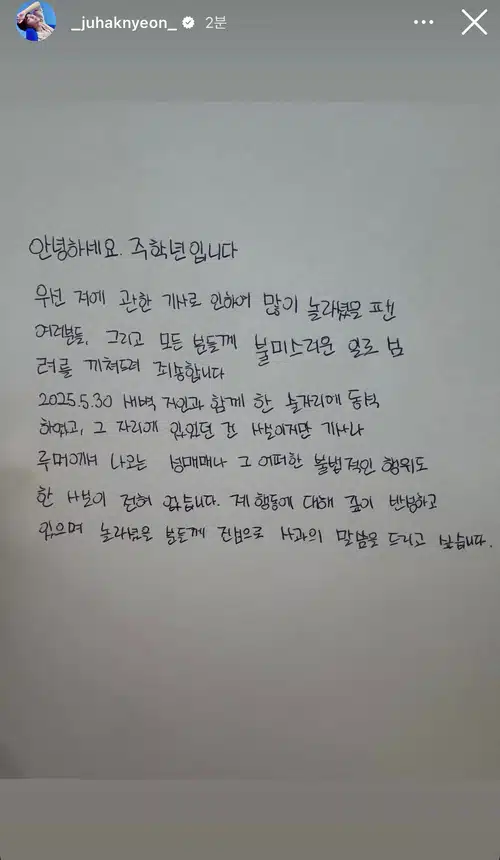 _juhaknyeon_ 2분
안녕하세요. 주학년입니다
우선 저에 관한 기사로 인하여 많이 놀라셨을 팬
여러분들, 그리고 모든 분들께 불미스러운 일로 심
려를 끼쳐드려 죄송합니다
2025.5.30 새벽 지인과 함께 한 술자리에 동석
하였고, 그 자리에 있었던 건 사실이지만 기사나
루머에서 나오는 성매매나 그 어떠한 불법적인 행위도
한 사실이 전혀 없습니다. 제 행동에 대해 깊이 반성하고
있으며 놀라셨을 분들께 진심으로 사과의 말씀을 드리고 싶습니다.